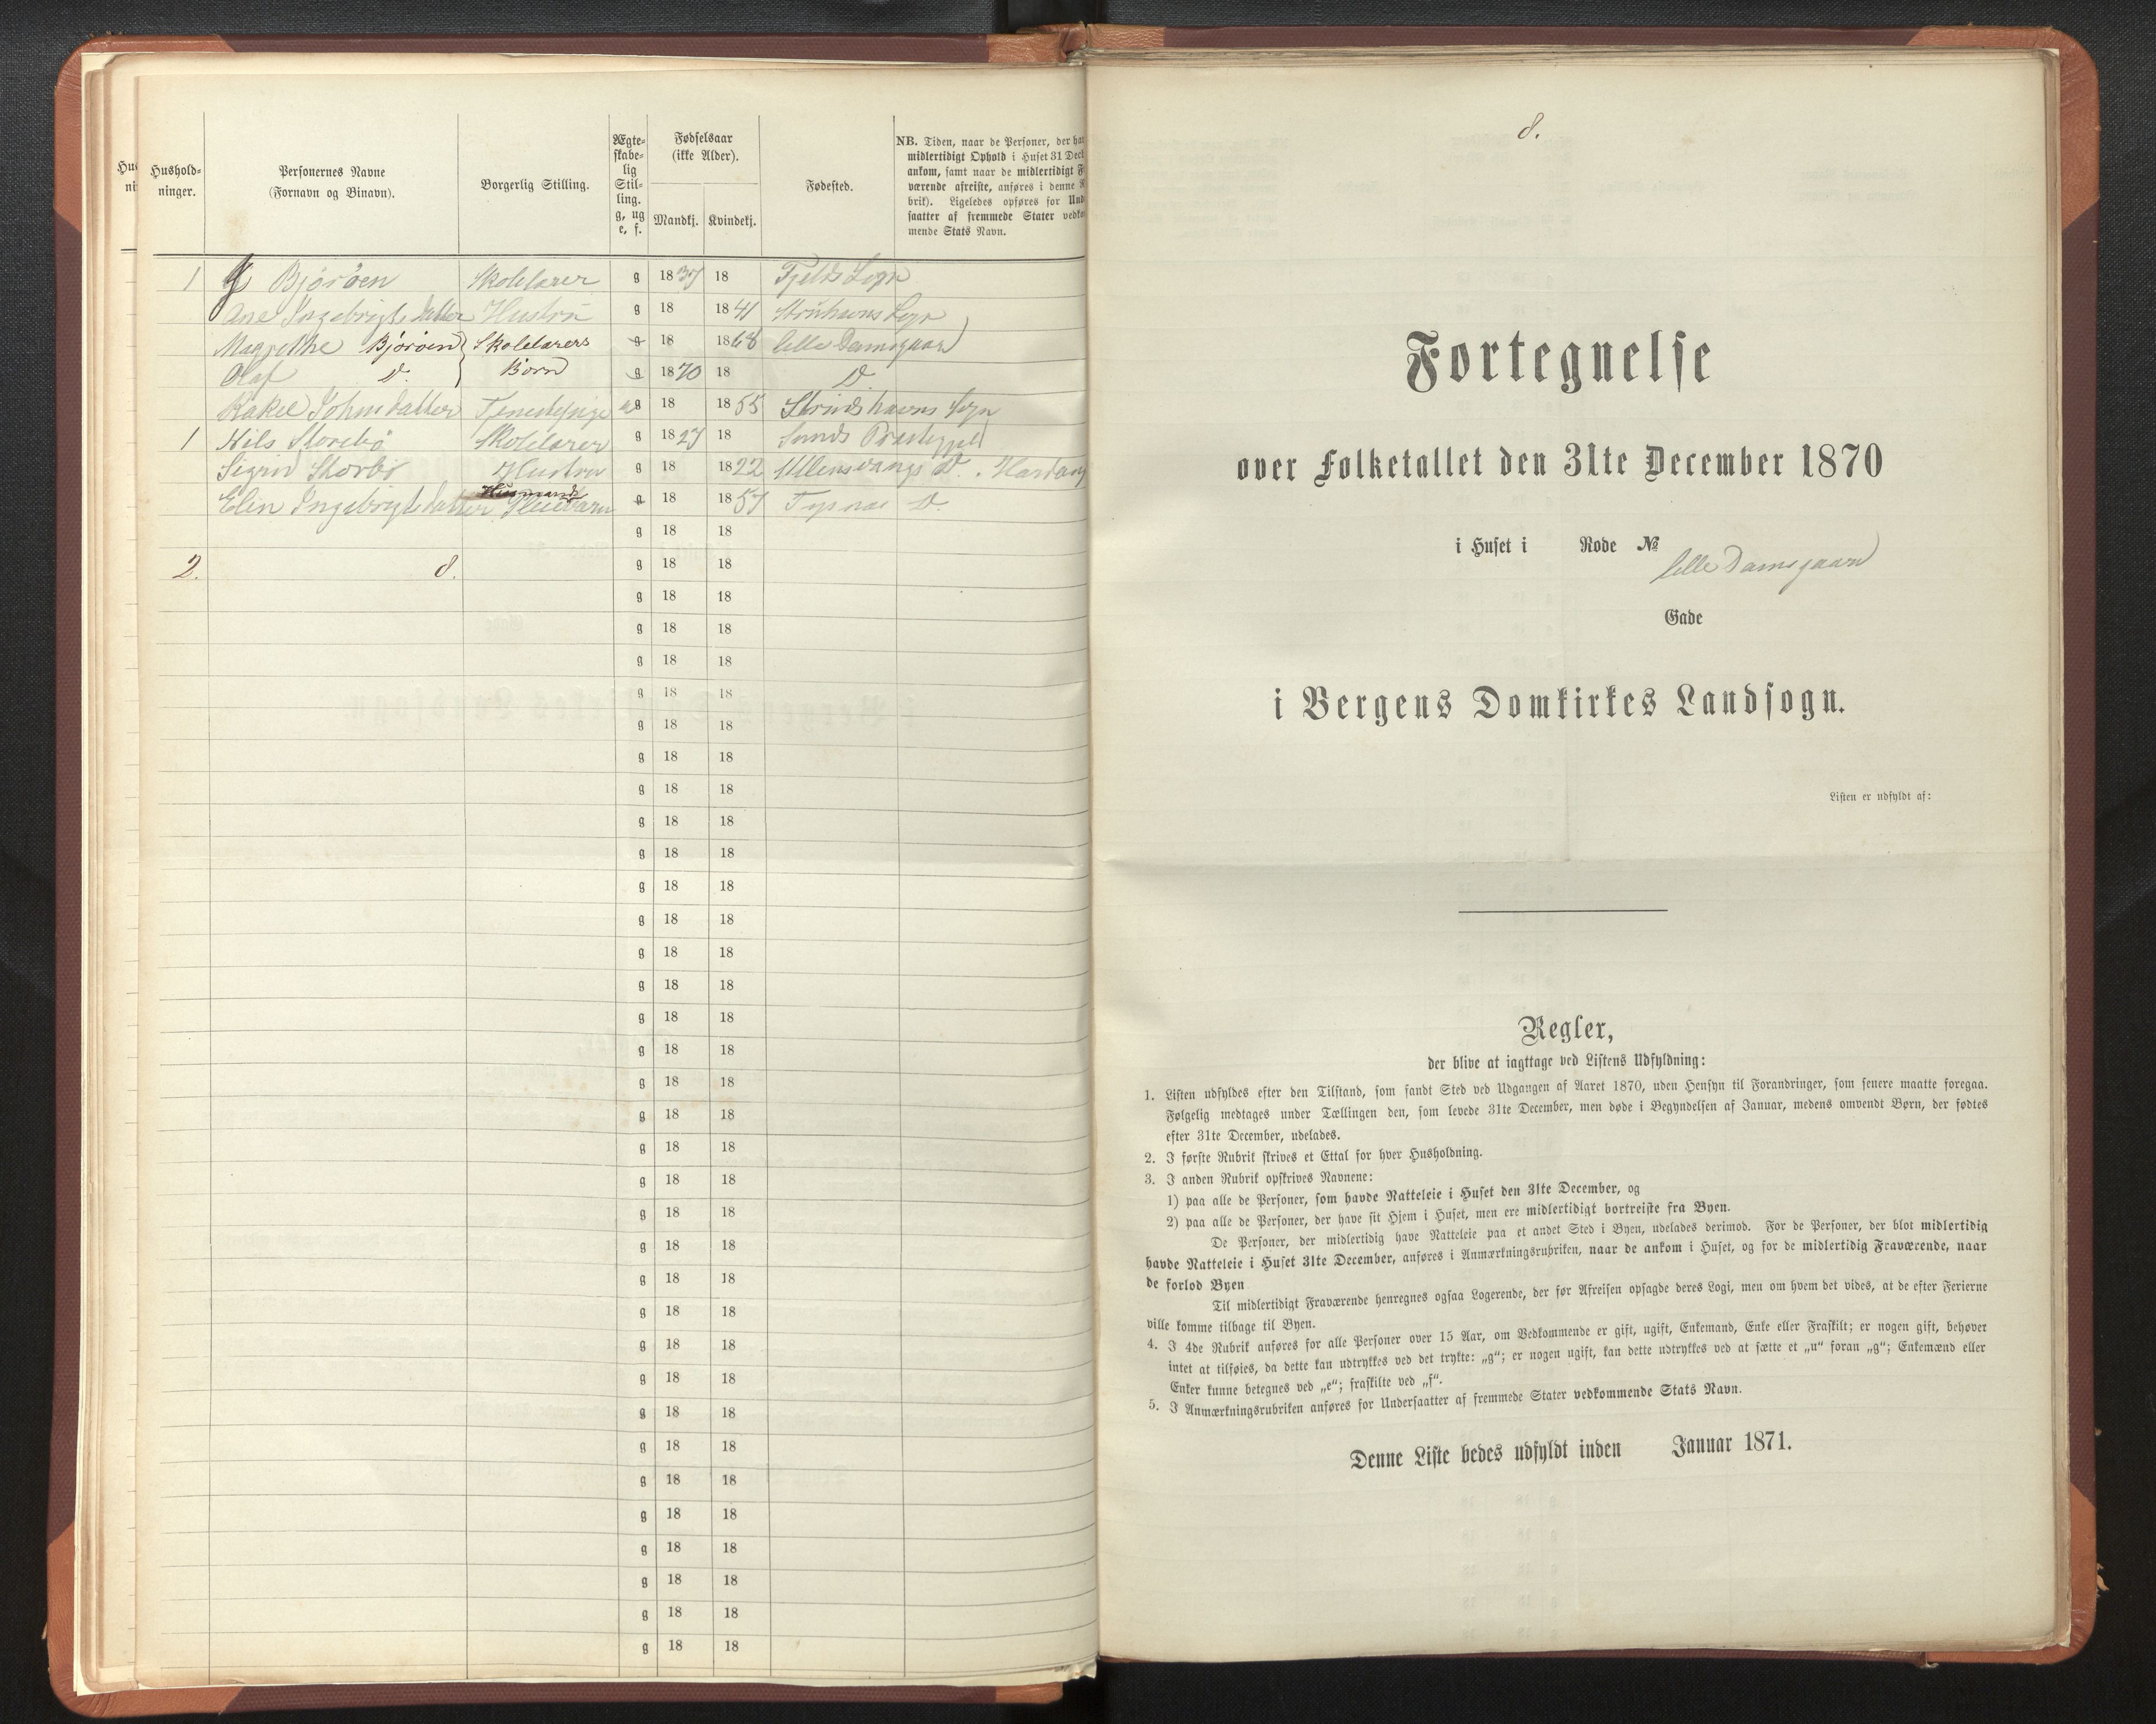 Hushold-
ninger.
Personernes Navne
(Fornavn og Binavn).
Borgerlig Stilling.
Ægte-
skabe-
lig
Stil-
ling.
g, ug
e, f.
Fødselsaar
(ikke Alder).
Mandkj.
Kvindekj.
Fødested.
NB. Tiden, naar de Personer, der ha
midlertidigt Ophold i Huset 31 Dec
ankom, samt naar de midlertidigt F
værende afreiste, anføres i denne R
brik). Ligeledes opføres for Und
saatter af fremmede Stater vedko
mende Stats Navn.
1 Björöen Skolelærer g 1837 18 Fjelds Sogn
Ane Ingebrigtsdatter Hustru g 18 1841 Sogn
Magrethe Björöen Skolelærers g 18 1868 lille Damsgaard
Olaf D. Börn g 1870 18 D.
Rakel Johnsdatter Tjenestepige ug 18 1855 Strudshavns Sogn
1 Nils Storebö Skolelærer g 1827 18 Sunds Præstegjeld
Sigrid Storebö Hustru g 18 1822 Ullensvangs D. Hardang
Husmands
Elen Ingebrigtsdatter Pleiebarn g 18 1857 Tysnæs D.
g 18 18
2. 8. g 18 18
g 18 18
g 18 18
g 18 18
g 18 18
g 18 18
g 18 18
g 18 18
g 18 18
g 18 18
g 18 18
g 18 18
g 18 18
g 18 18
g 18 18
g 18 18
g 18 18
g 18 18
g 18 18
g 18 18
g 18 18
g 18 18
g 18 18
g 18 18
g 18 18
g 18 18
g 18 18
g 18 18
g 18 18
g 18 18
g 18 18
g 18 18
g 18 18
g 18 18
8.
Fortegnelse
over Folketallet den 31te December 1870
i Huset i Rode №
lille Damsgaard
Gade
i Bergens Domkirkes Landsogn.
Listen er udfyldt af:
Regler,
der blive at iagttage ved Listens Udfyldning:
1. Listen udfyldes efter den Tilstand, som fandt Sted ved Udgangen af Aaret 1870, uden Hensyn til Forandringer, som senere maatte foregaa.
Følgelig medtages under Tællingen den, som levede 31te December, men døde i Begyndelsen af Januar, medens omvendt Børn, der fødtes
efter 31te December, udelades.
2. I første Rubrik skrives et Ettal for hver Husholdning.
3. I anden Rubrik opskrives Navnene:
1) paa alle de Personer, som havde Natteleie i Huset den 31te December, og
2) paa alle de Personer, der have sit Hjem i Huset, men ere midlertidigt bortreiste fra Byen.
De Personer, der midlertidig have Natteleie paa et andet Sted i Byen, udelades derimod. For de Personer, der blot midlertidig
havde Natteleie i Huset 31te December, anføres i Anmærkningsrubriken, naar de ankom i Huset, og for de midlertidig Fraværende, naar
de forlod Byen
Til midlertidigt Fraværende henregnes ogsaa Logerende, der før Afreisen opsagde deres Logi, men om hvem det vides, at de efter Ferierne
ville komme tilbage til Byen.
4. I 4de Rubrik anføres for alle Personer over 15 Aar, om Vedkommende er gift, ugift, Enkemand, Enke eller Fraskilt; er nogen gift, behøver
intet at tilføies, da dette kan udtrykkes ved det trykte: „g“; er nogen ugift, kan dette udtrykkes ved at sætte et „u“ foran „g“; Enkemænd eller
Enker kunne betegnes ved „e“; fraskilte ved „f“.
5. I Anmærkningsrubriken anføres for Undersaatter af fremmede Stater vedkommende Stats Navn.
Denne Liste bedes udfyldt inden Januar 1871.